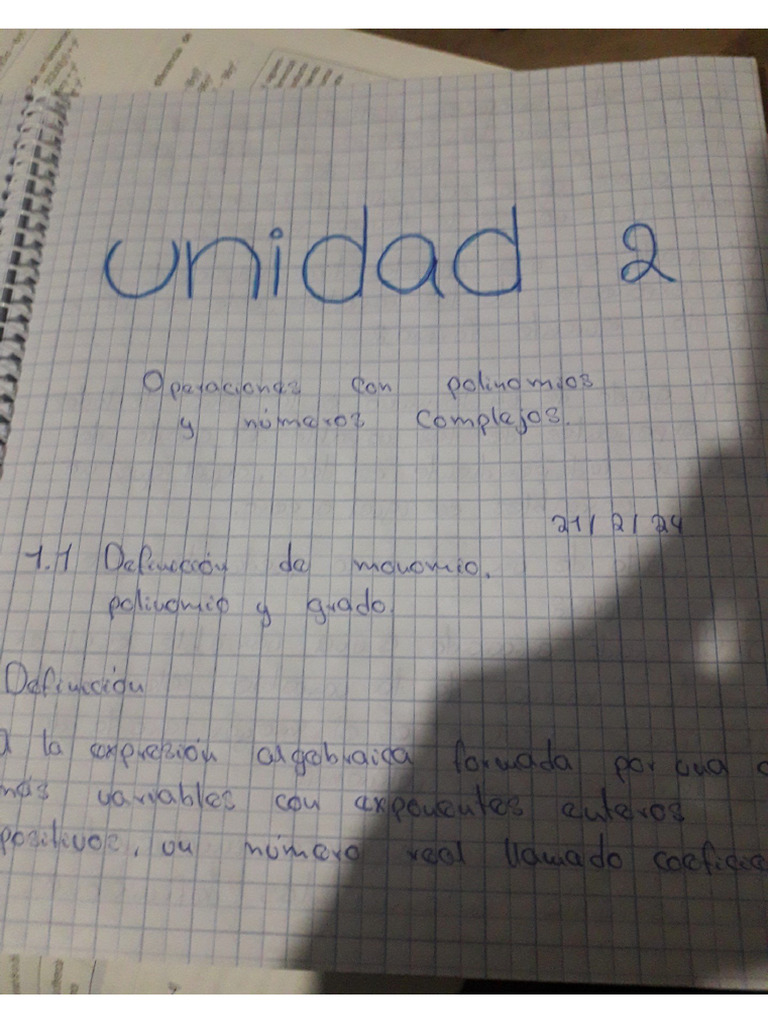 unidad 2
Operaciones con polinomios
y números complejos.
21/2/24
1.1 Definición de monomio,
polinomio y grado.
Definición
la expresión algebraica formada por una
más variables con exponentes enteros
positivos, un número real llamado